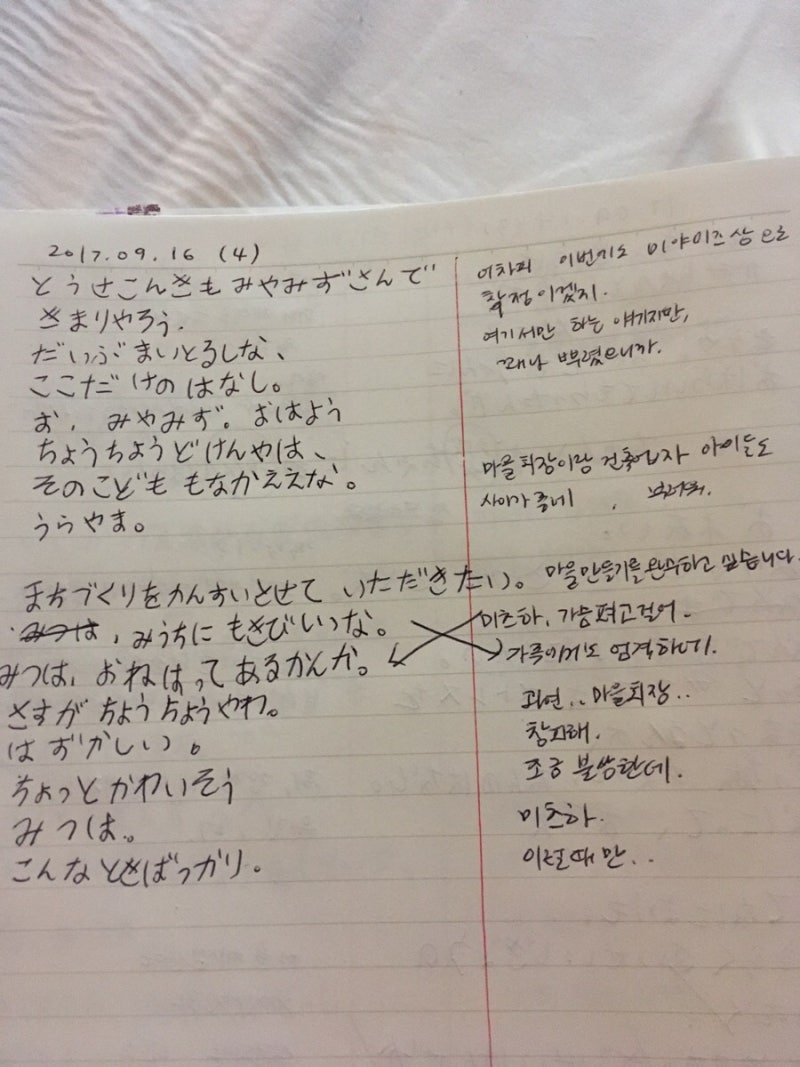 2017.09.16 (4)
とうせこんきも みやみずさんで
きまりやろう.
だいぶまいとるしな、
ここだけの はなし。
お, みやみず。おはよう
ちょうちょうどけんやは、
そのこども もなかええな。
うらやま。
まちづくりをかんすいとせて いただきたい。
みつは, みうちに もきびいつな。
みつは, おねはって あるかんか。
さすが ちょうちょうやわ。
はずかしい。
ちょっと かわいそう
みつは。
こんなときばっかり。
어차피 이번기도 미야미즈상으로
확정이겠지.
여기서만 하는 얘기지만,
꽤나 뿌렸으니까.
마을회장이랑 건축업자 아이들도
사이가 좋네 , 부러워.
마을만들기를 완수하고 싶습니다.
미츠하, 가슴펴고걸어.
가족에게도 엄격하네.
과연.. 마을회장..
창피해.
조금 불쌍한데.
미츠하.
이런때만..